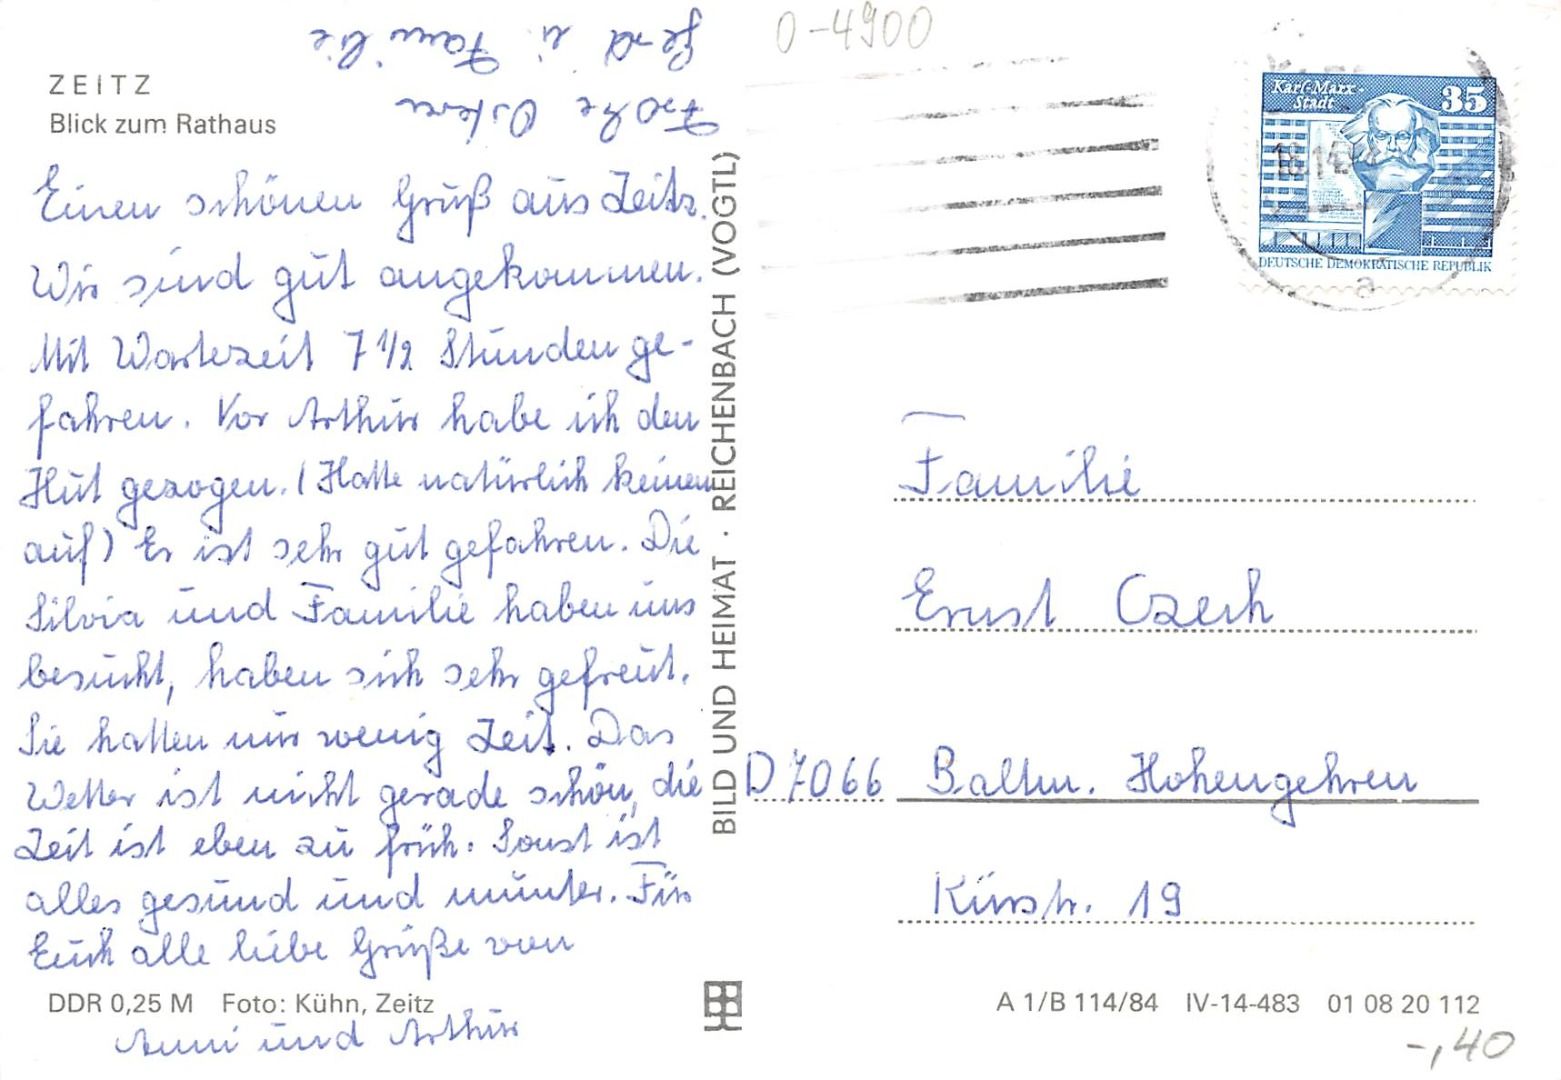 ZEITZ
Blick zum Rathaus
Einen schönen Gruß aus Zeitz.
Wir sind gut angekommen.
Mit Wartezeit 7 1/2 Stunden ge-
fahren. Vor Arthur habe ich den
Hut gezogen. (Hatte natürlich keinen
auf) Er ist sehr gut gefahren. Die
Silvia und Familie haben uns
besucht, haben sich sehr gefreut.
Sie hatten nur wenig Zeit. Das
Wetter ist nicht gerade schön, die
Zeit ist eben zu früh. Sonst ist
alles gesund und munter. Für
Euch alle liebe Grüße von
DDR 0,25 M Foto: Kühn, Zeitz
Anni und Arthur
Frohe Ostern
Gerd u. Familie
BILD UND HEIMAT · REICHENBACH (VOGTL)
O-4900
Karl-Marx-
Stadt
35
DEUTSCHE DEMOKRATISCHE REPUBLIK
a
Familie
Ernst Czech
D 7066 Baltm. Hohengehren
Kurstr. 19
A 1/B 114/84 IV-14-483 01 08 20 112
-,40